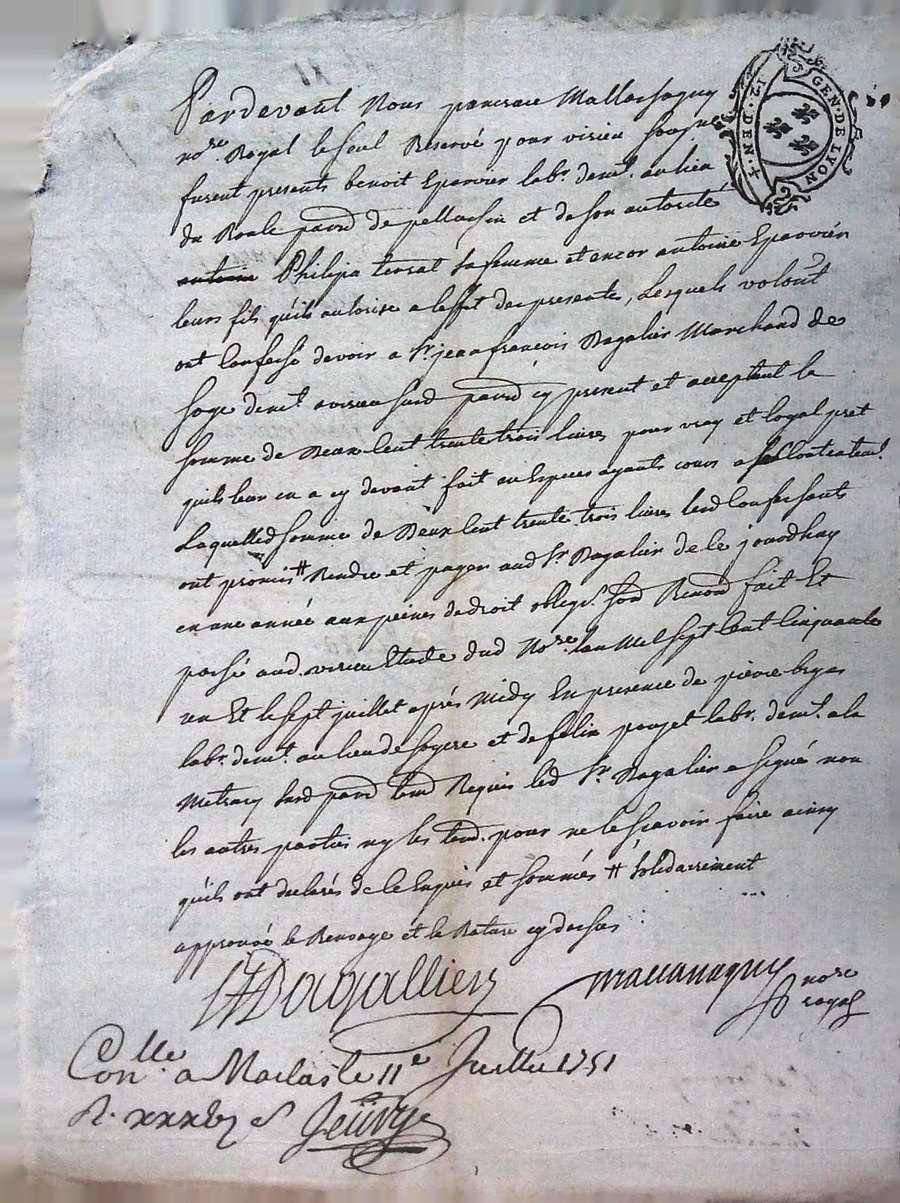 GEN · DE LYON
12 · DEN · 4
Pardevant Nous
nore. Royal le seul Reservé pour virieu
furent presents benoit Eparvier labr. demt. au lieu
du paroid de pellussin et de son autorité
antoine Philipa sa femme et encor antoine Eparvier
leurs fils quils autorise a leffet des presente, Lesquels volont
ont confessé devoir a Sr. jean francois Dagalier Marchand de
soye demt. a virieu paroid cy present et acceptant la
somme de Deux Cent trente trois livres pour vray et loyal pret
quils leur en a cy devant fait en Especes ayants cours a
Laquelled somme de Deux Cent trente trois livres lesd Confessants
ont promis # Rendre et payer aud Sr. Dagalier de ce jourdhuy
en une année aux peines de droit oblige. Renond fait Et
passé aud. virieu Etude dud Nore. lan Mil sept Cent Cinquante
un Et le sept juillet après Midy En presence de pierre
labr. demt. au lieu de et de felin pouzet labr. demt. a la
paroid Requis led Sr. Dagalier a signé non
les autres parties ny les pour ne le scavoir faire ainsy
quils ont declarés de ce Enquis et sommés # solidairement
approuvé le Renvoye et la Rature cy dessus
Dagallier nore
royal
Conlle. a Maclas le 11e Juillet 1751
R.